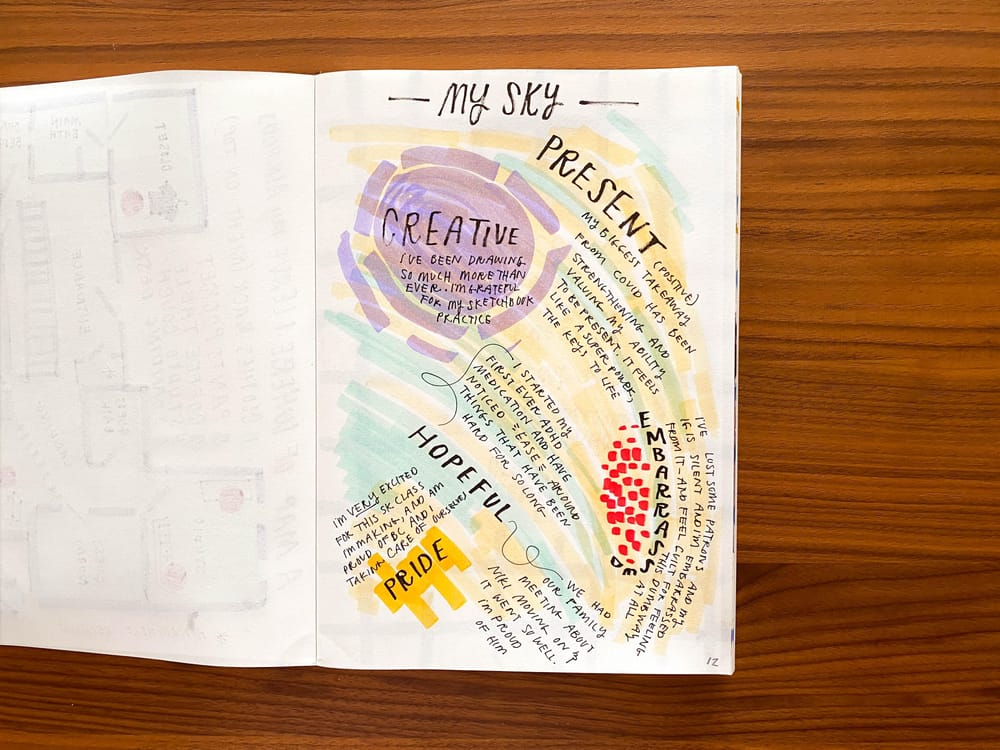 MY SKY
PRESENT
MY BIGGEST (POSITIVE)
TAKEAWAY
FROM COVID HAS BEEN
STRENGTHENING AND
VALUING MY ABILITY
TO BE PRESENT. IT FEELS
LIKE A SUPER POWER,
THE KEYS TO LIFE
CREATIVE
I'VE BEEN DRAWING
SO MUCH MORE THAN
EVER. I'M GRATEFUL
FOR MY SKETCHBOOK
PRACTICE
I STARTED MY
FIRST EVER ADHD
MEDICATION AND HAVE
NOTICED "EASE" AROUND
THINGS THAT HAVE BEEN
HARD FOR SO LONG
HOPEFUL
WE HAD
OUR FAMILY
MEETING ABOUT
NIKI MOVING ON &
IT WENT SO WELL.
I'M PROUD
OF HIM
EMBARRASSED
I'VE LOST SOME PATRONS AND MY
IG IS SILENT AND I'M EMBARRASSED
FROM IT - AND FEEL GUILT FOR FEELING
THIS DUMB WAY
AT ALL
I'M VERY EXCITED
FOR THIS SK CLASS
I'M MAKING, AND AM
PROUD OF BC AND I
TAKING CARE OF OURSELVES
PRIDE
12